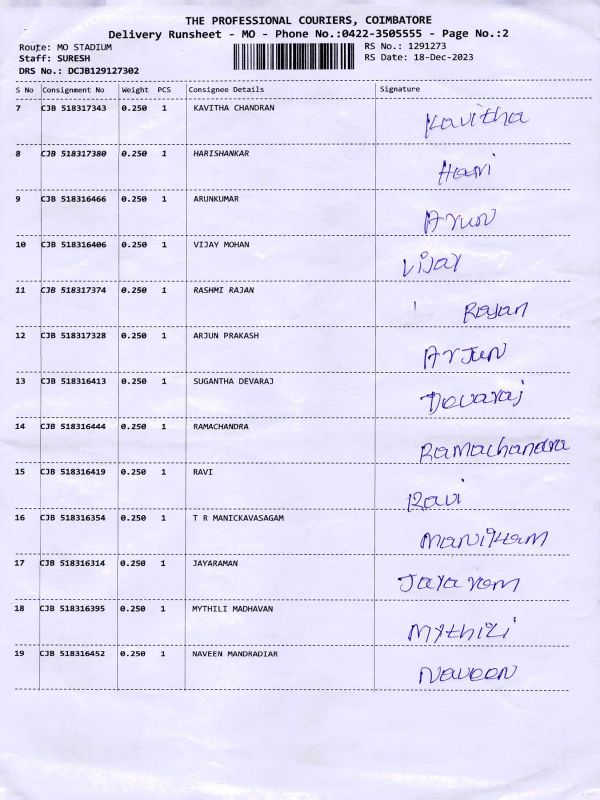 THE PROFESSIONAL COURIERS, COIMBATORE
Delivery Runsheet - MO - Phone No.:0422-3505555 - Page No.:2
Route: MO STADIUM RS No.: 1291273
Staff: SURESH RS Date: 18-Dec-2023
DRS No.: DCJB129127302
S No Consignment No Weight PCS Consignee Details Signature
7 CJB 518317343 0.250 1 KAVITHA CHANDRAN Kavitha
8 CJB 518317380 0.250 1 HARISHANKAR Hari
9 CJB 518316466 0.250 1 ARUNKUMAR Arun
10 CJB 518316406 0.250 1 VIJAY MOHAN Vijay
11 CJB 518317374 0.250 1 RASHMI RAJAN Rajan
12 CJB 518317328 0.250 1 ARJUN PRAKASH Arjun
13 CJB 518316413 0.250 1 SUGANTHA DEVARAJ Devaraj
14 CJB 518316444 0.250 1 RAMACHANDRA Ramachandra
15 CJB 518316419 0.250 1 RAVI Ravi
16 CJB 518316354 0.250 1 T R MANICKAVASAGAM Manikam
17 CJB 518316314 0.250 1 JAYARAMAN Jayaram
18 CJB 518316395 0.250 1 MYTHILI MADHAVAN Mythili
19 CJB 518316452 0.250 1 NAVEEN MANDRADIAR Naveen